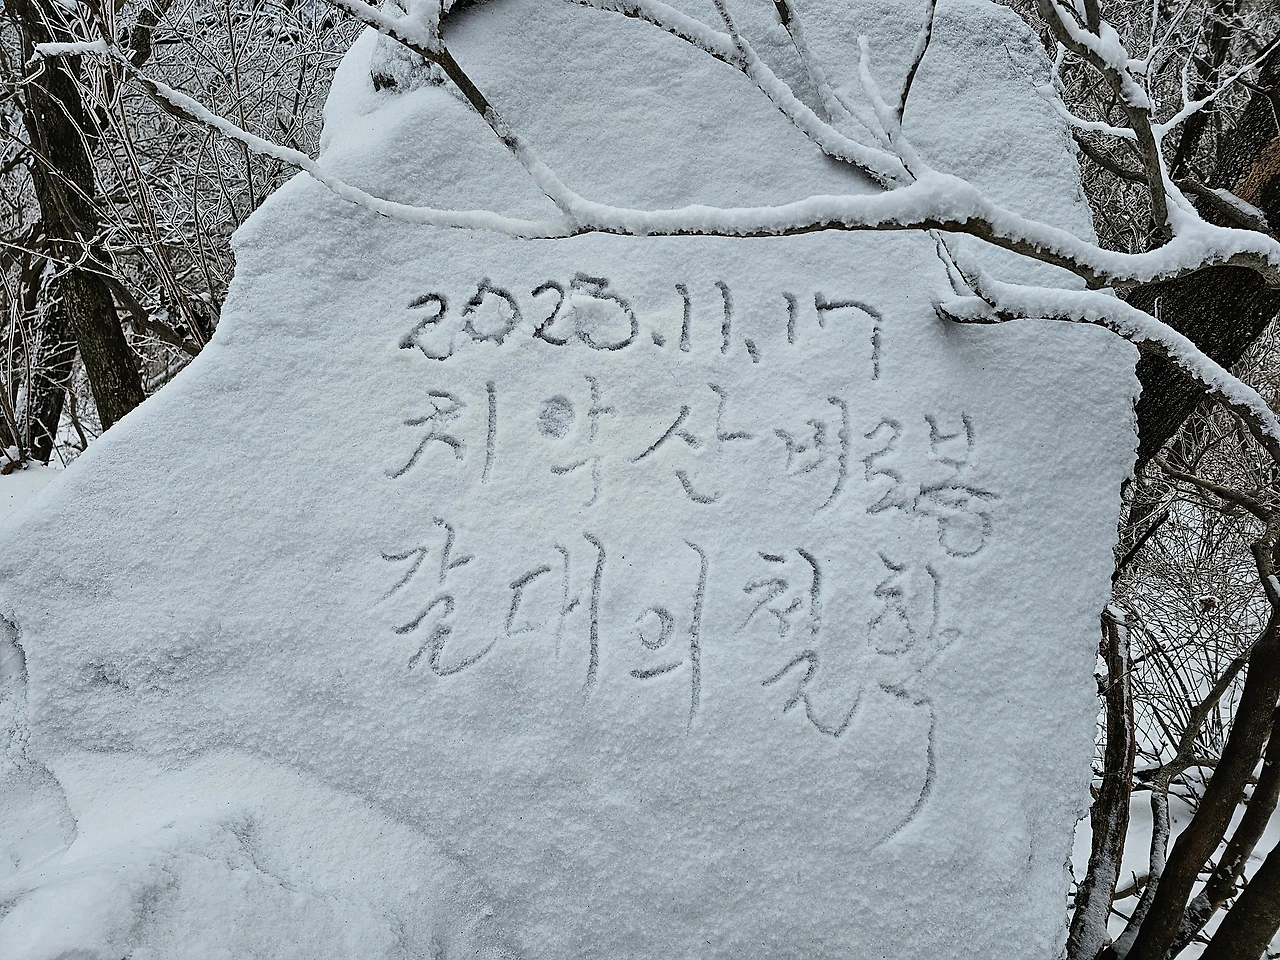 2023.11.17
치악산 비로봉
갈대의 철학